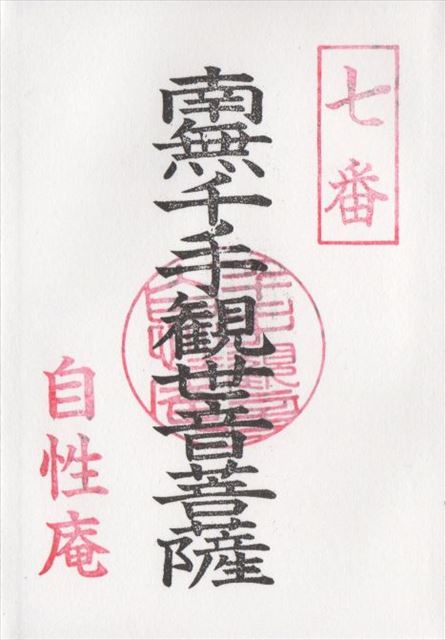 七番
南無千手観世音菩薩
自性庵